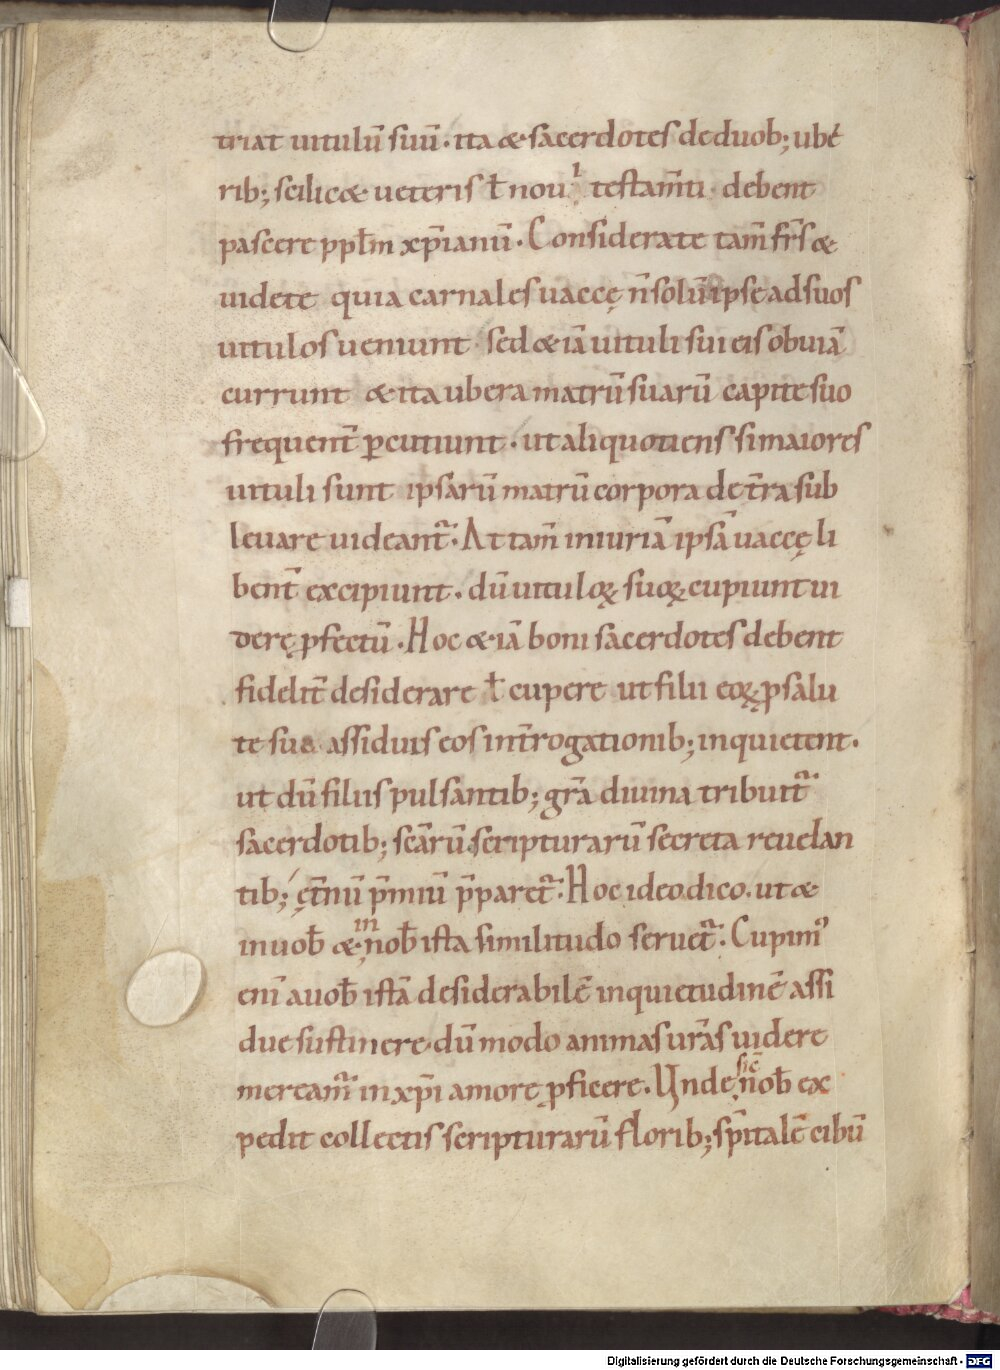 triat uitulū suū · ita & sacerdotes de duob; ube
rib; scilic& ueteris ł noui testam̄ti · debent
pascere ppł̄m xp̄ianū · Considerate tam̄ fr̄s &
uidete quia carnales uaccę n̄ solū ipsę ad suos
uitulos ueniunt · sed & iā uituli sui eis obuiā
currunt & ita ubera matrū suarū capite suo
frequent̄ ꝑcutiunt · ut aliquotiens si maiores
uituli sunt ipsarū matrū corpora de t̄ra sub
leuare uideant̃ · At tam̄ iniuriā ipsā uaccę li
bent̄ excipiunt · dū uituloꝝ suoꝝ cupiunt ui
derę ꝓfectū · Hoc & iā boni sacerdotes debent
fidelit̄ desiderare ł cupere ut filii eoꝝ ꝓ salu
te sua assiduis eos int̄rogationib; inquietent ·
ut dū filiis pulsantib; gr̄a diuina tribuit̃
sacerdotib; scārū scripturarū secreta reuelan
tib; ęt̄nū p̄miū p̄paret̃ · Hoc ideo dico · ut &
in uob̄ & in nob̄ ista similitudo seruet̃ · Cupim᾽
eni̅ a uob̄ istā desiderabilē inquietudinē assi
due sustinere · dū modo animas ur̄as uidere
meream̃ in xp̄i amore ꝓficere · Unde sic̄ nob̄ ex
pedit collectis scripturarū florib; sp̄italē cibū
Digitalisierung gefördert durch die Deutsche Forschungsgemeinschaft - DFG